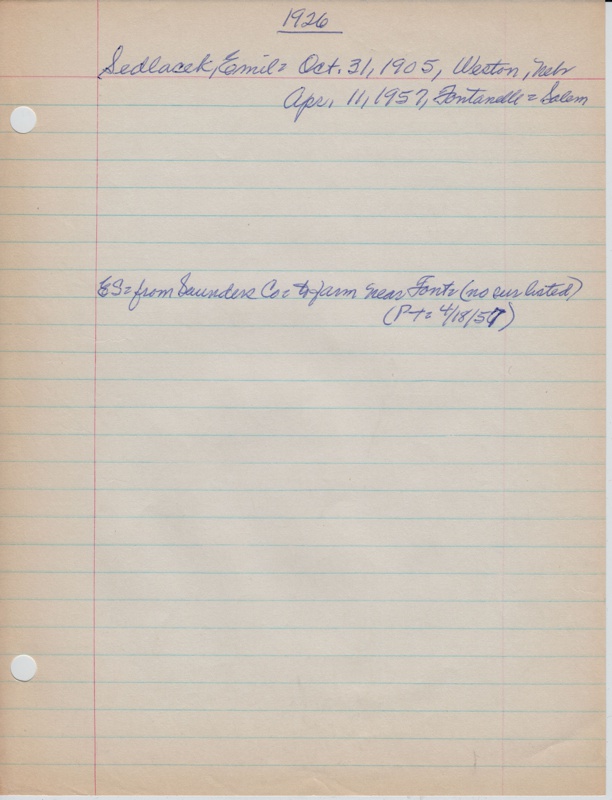 1926
Sedlacek, Emil = Oct. 31, 1905, Weston, Nebr
Apr. 11, 1957, Fontanelle = Salem
ES = from Saunders Co = to farm near Font = (no sur listed)
(PT = 4/18/57)